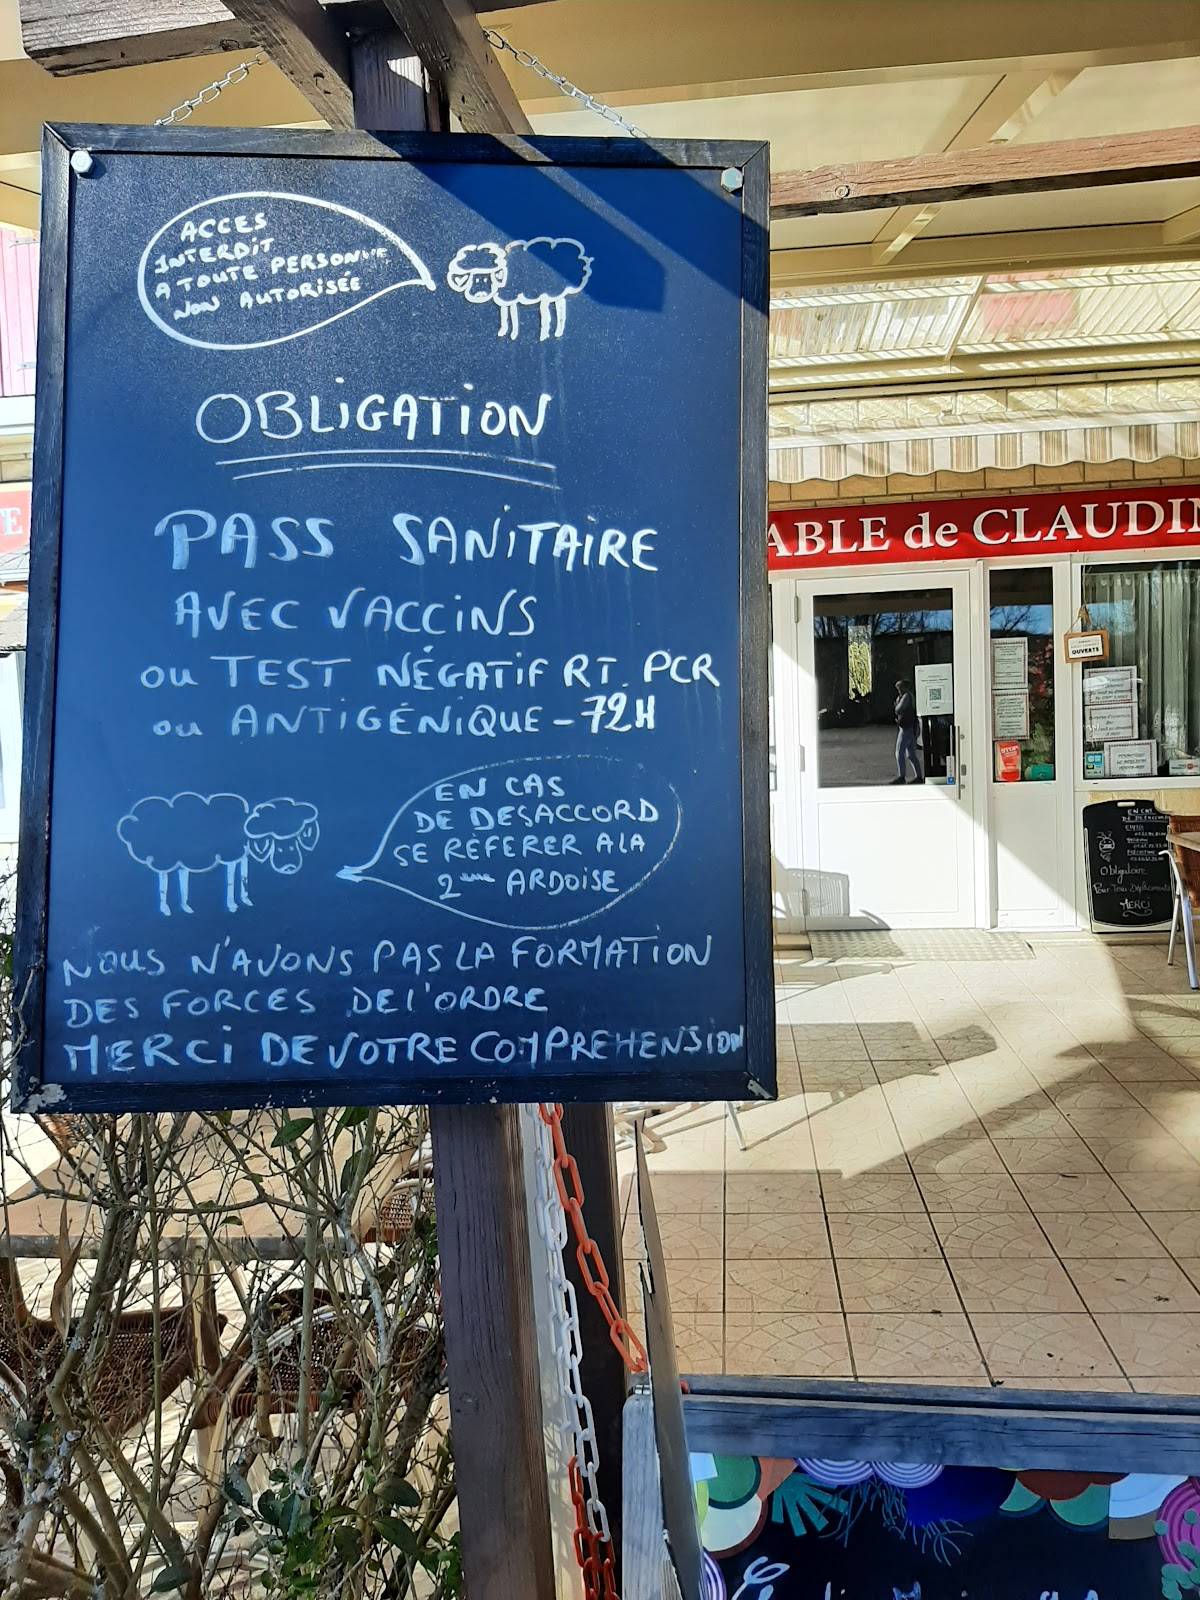 ACCES
INTERDIT
A TOUTE PERSONNE
NON AUTORISÉE
OBLIGATION
PASS SANITAIRE
AVEC VACCINS
ou TEST NÉGATIF RT. PCR
ou ANTIGÉNIQUE - 72H
EN CAS
DE DESACCORD
SE RÉFERER A LA
2ème ARDOISE
NOUS N'AVONS PAS LA FORMATION
DES FORCES DE l'ORDRE
MERCI DE VOTRE COMPREHENSION
TE
ABLE de CLAUDIN
OUVERTE
STOP
EN CAS
DE DESACCORD
Obligatoire
Pour Tous Déplacements
MERCI